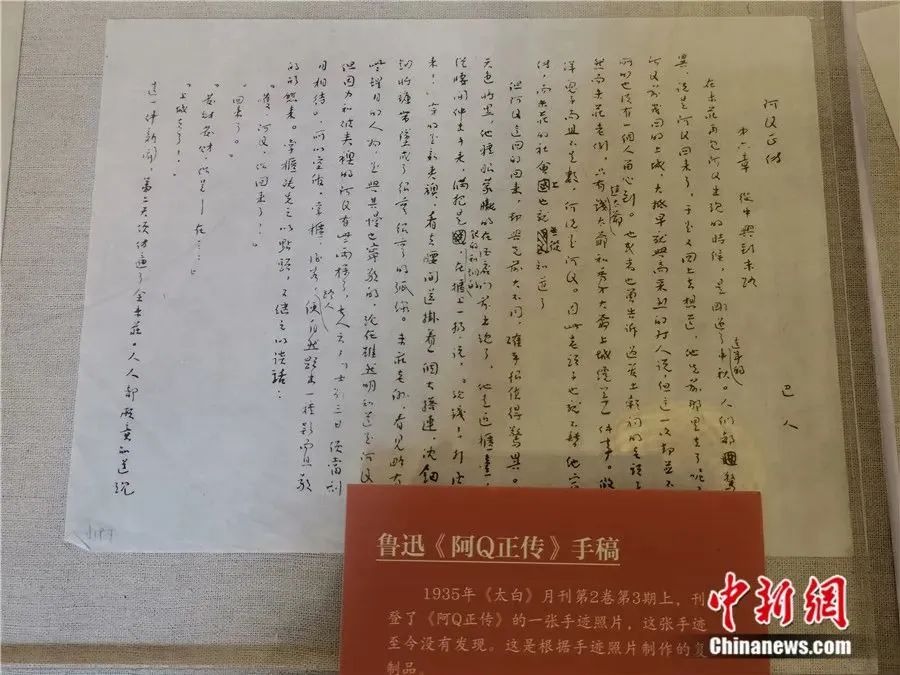 阿Q正传
第六章 从中兴到末路
巴人
在未莊再看見阿Q出現的時候，是剛过了這年的中秋。人们都驚
異，說是阿Q回來了，于是又回上去想道，他先前那里去了呢，
阿Q前幾回的上城，大抵早就興高采烈的对人說，但这一次却並不
所以也沒有一個人留心到。他或者也曾告诉过管土穀祠的老頭子
然而未莊老例，只有趙太爺錢太爺和秀才大爺上城纔算一件事。假
洋鬼子尚且不足數，何況是阿Q。因此老頭子也就不替他宣
傳，而未莊的社會上也就無從知道了
但阿Q這回的回來，却與先前大不同，確乎很值得驚異。
天色將黑，他睡眼蒙朧的在酒店門前出現了，他走近櫃臺，
從腰間伸出手來，滿把是銀的和銅的，在櫃上一扔，說，“現錢！打酒
來！”穿的是新夾襖，看去腰間还掛着一個大搭連，沈鈿
鈿的將褲帶墜成了很彎很彎的弧線。未莊老例，看見略有
些醒目的人物，是與其慢也寧敬的，現在雖然明知道是阿Q
但因为和破夾襖的阿Q有些两樣了，古人云，“士别三日便當刮
目相待”，所以堂倌，掌櫃，酒客，路人，便自然顯出一種疑而且敬
的形態來。掌櫃既先之以點頭，又繼之以談話：
“嚄，阿Q，你回來了！”
“回來了。”
“發財發財，你是——在……”
“上城去了！”
這一件新聞，第二天便傳遍了全未莊。人人都願意知道現
鲁迅《阿Q正传》手稿
1935年《太白》月刊第2卷第3期上，刊
登了《阿Q正传》的一张手迹照片，这张手迹
至今没有发现。这是根据手迹照片制作的复
制品。
中新网
Chinanews.com